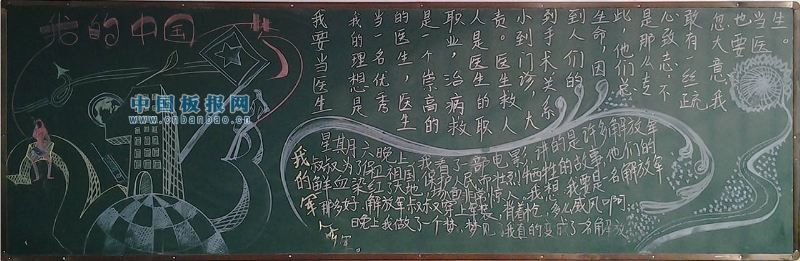 我的中国
中国板报网
www.cnbanbao.cn
我要当医生
我的理想是
当一名优秀
的医生，医生
是一个崇高的
职业，治病救
人是医生的职
责。医生救人
小到门诊，大
到手术关系
到人们的
生命，因
此，他们总
是那么专
心致志，不
敢有一丝疏
忽大意，我
也要
当医
生。
我的军
星期六晚上，我看了一部电影，讲的是许多解放军
叔叔为了保卫祖国、保护人民而壮烈牺牲的故事，他们的
鲜血染红了大地，场面很惊人。我想，我要是一名解放军
那多好，解放军叔叔穿上军装，肖着枪，多么威风啊
晚上我做了一个梦，梦见我真的变成了一名解放
军。